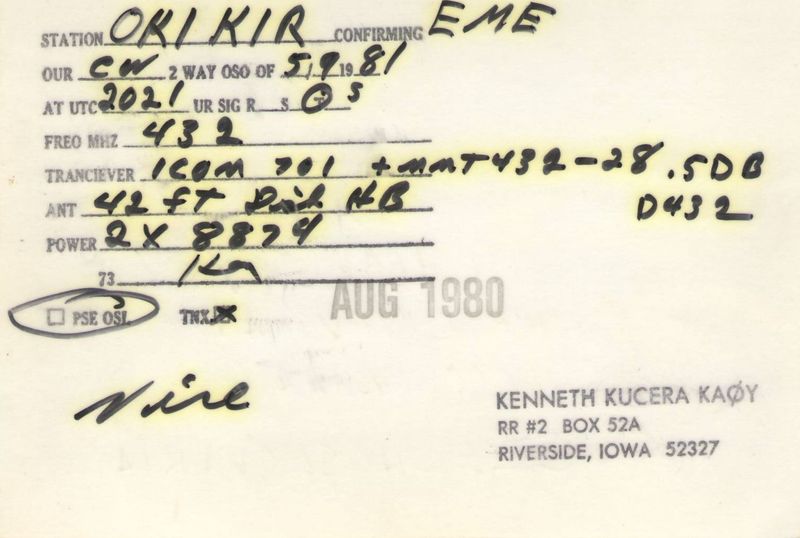 STATION OK1KIR CONFIRMING EME
OUR CW 2 WAY QSO OF 5/9 1981
AT UTC 2021 UR SIG R S O S
FREQ MHZ 432
TRANCIEVER ICOM 701 + MMT432-28 .5DB
D432
ANT 42 FT Dish HB
POWER 2X 8874
73 Ken
☐ PSE QSL TNX
AUG 1980
Nice
KENNETH KUCERA KAØY
RR #2 BOX 52A
RIVERSIDE, IOWA 52327